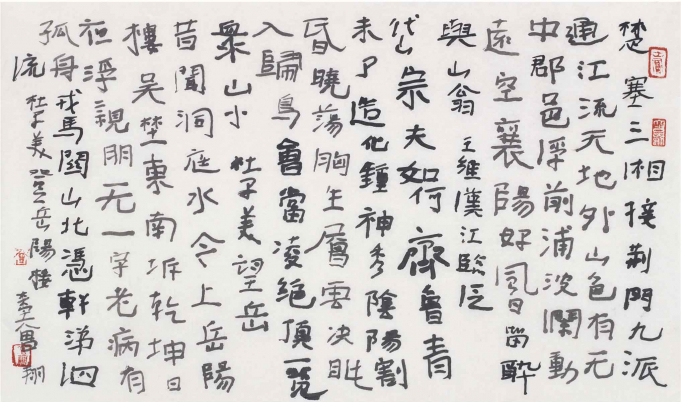 楚塞三湘接荆門九派
通江流天地外山色有无
中郡邑浮前浦波瀾動
遠空襄陽好風日留醉
與山翁 王維漢江臨泛
岱宗夫如何齊魯青
未了造化鍾神秀陰陽割
昏曉蕩胸生層雲决眥
入歸鳥會當凌絕頂一覽
衆山小 杜子美望岳
昔聞洞庭水今上岳陽
樓吳楚東南坼乾坤日
夜浮親朋无一字老病有
孤舟戎馬關山北憑軒涕泗
流 杜子美登岳陽樓